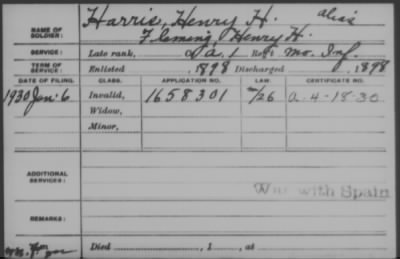 NAME OF SOLDIER: Harris, Henry H. alias
Fleming Henry H.
SERVICE: Late rank, 1 Reg't Mo. Inf.
TERM OF SERVICE: Enlisted 1898 Discharged 1898
DATE OF FILING. CLASS. APPLICATION NO. LAW. CERTIFICATE NO.
1930 Jan. 6 Invalid, 1658301 /26 a. 4-18-30
Widow,
Minor,
ADDITIONAL SERVICES:
War with Spain
REMARKS:
Died , 1 , at